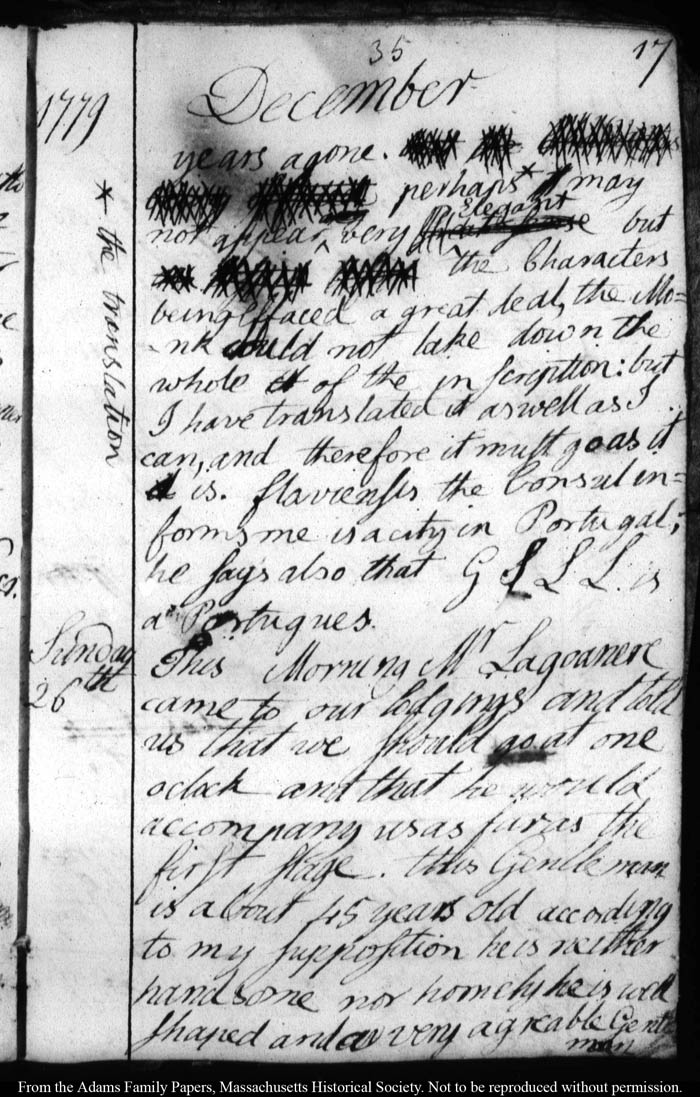 35
17
December
1779
years agone.
perhaps * it may
Elegant
not appear very but
the Characters
being effaced a great deal, the Mo=
-nk could not take down the
whole of the inscription: but
I have translated it as well as I
can, and therefore it must go as it
is. flaviensis the Consul in=
forms me is a city in Portugal,
he says also that G L L L is
a Portugues.
* the translation
Sunday
26th
This Morning Mr Lagoanere
came to our lodgings and told
us that we should go at one
oclock and that he would
accompany us as far as the
first stage. this Gentleman
is about 45 years old according
to my supposition he is neither
handsome nor homely he is well
shaped and a very agreable Gentle
man
From the Adams Family Papers, Massachusetts Historical Society. Not to be reproduced without permission.